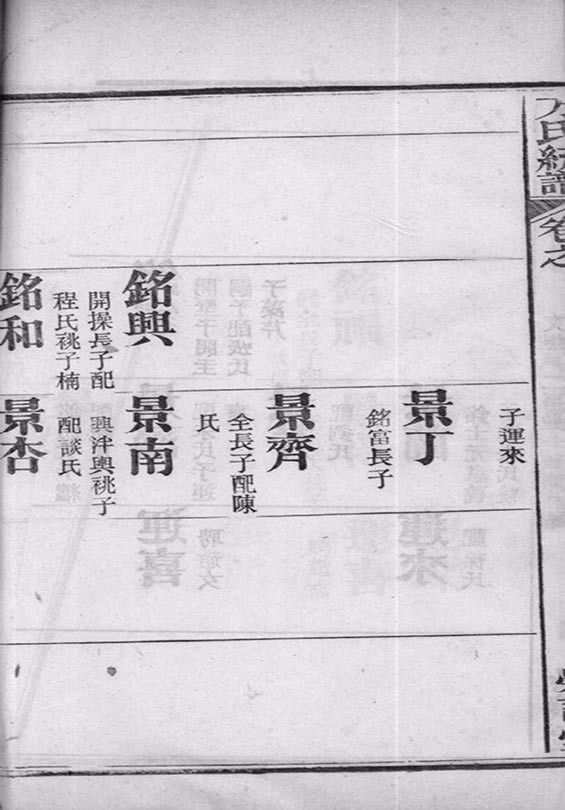 氏統譜
卷之
子運來
景丁
銘富長子
景齊
全長子配陳
氏
銘興
開操長子配
程氏祧子楠
景南
興泮輿祧子
配談氏
銘和
景杏